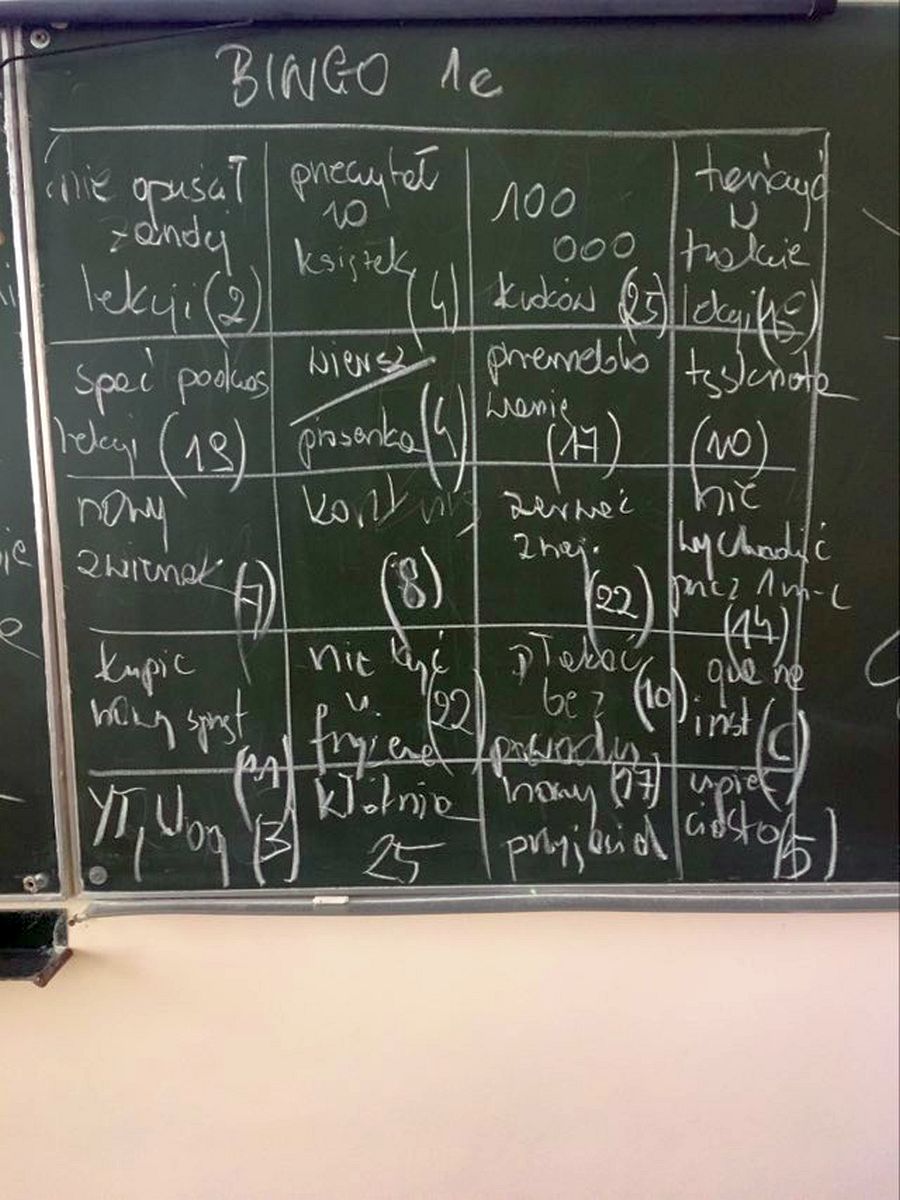 BINGO 1c
nie opuścił
żandej
lekcji (2)
przeczytał
10
książek
(4)
100
000
kroków (25)
tańczyć
w
trakcie
lekcji (15)
spać podczas
lekcji (19)
wiersz
piosenka (4)
przemeblo
wanie
(17)
tęsknota
(10)
nowy
zwierzak (7)
(8)
zerwać
znaj.
(22)
nie
wychodzić
przez 1 m-c
(14)
kupić
nowy sprzęt
(11)
nie być
u
fryzjera (22)
płakać
bez (10)
powodu
na
inst
YT, Vlog (3)
kłótnia
25
nowy (17)
przyjaciel
upiec
ciasto (5)